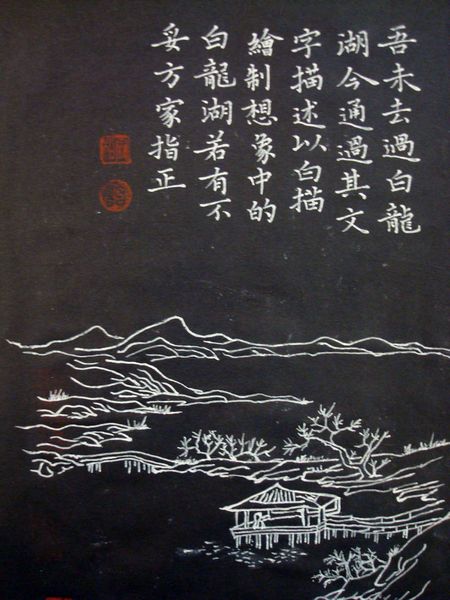 吾未去過白龍
湖今通過其文
字描述以白描
繪制想象中的
白龍湖若有不
妥方家指正